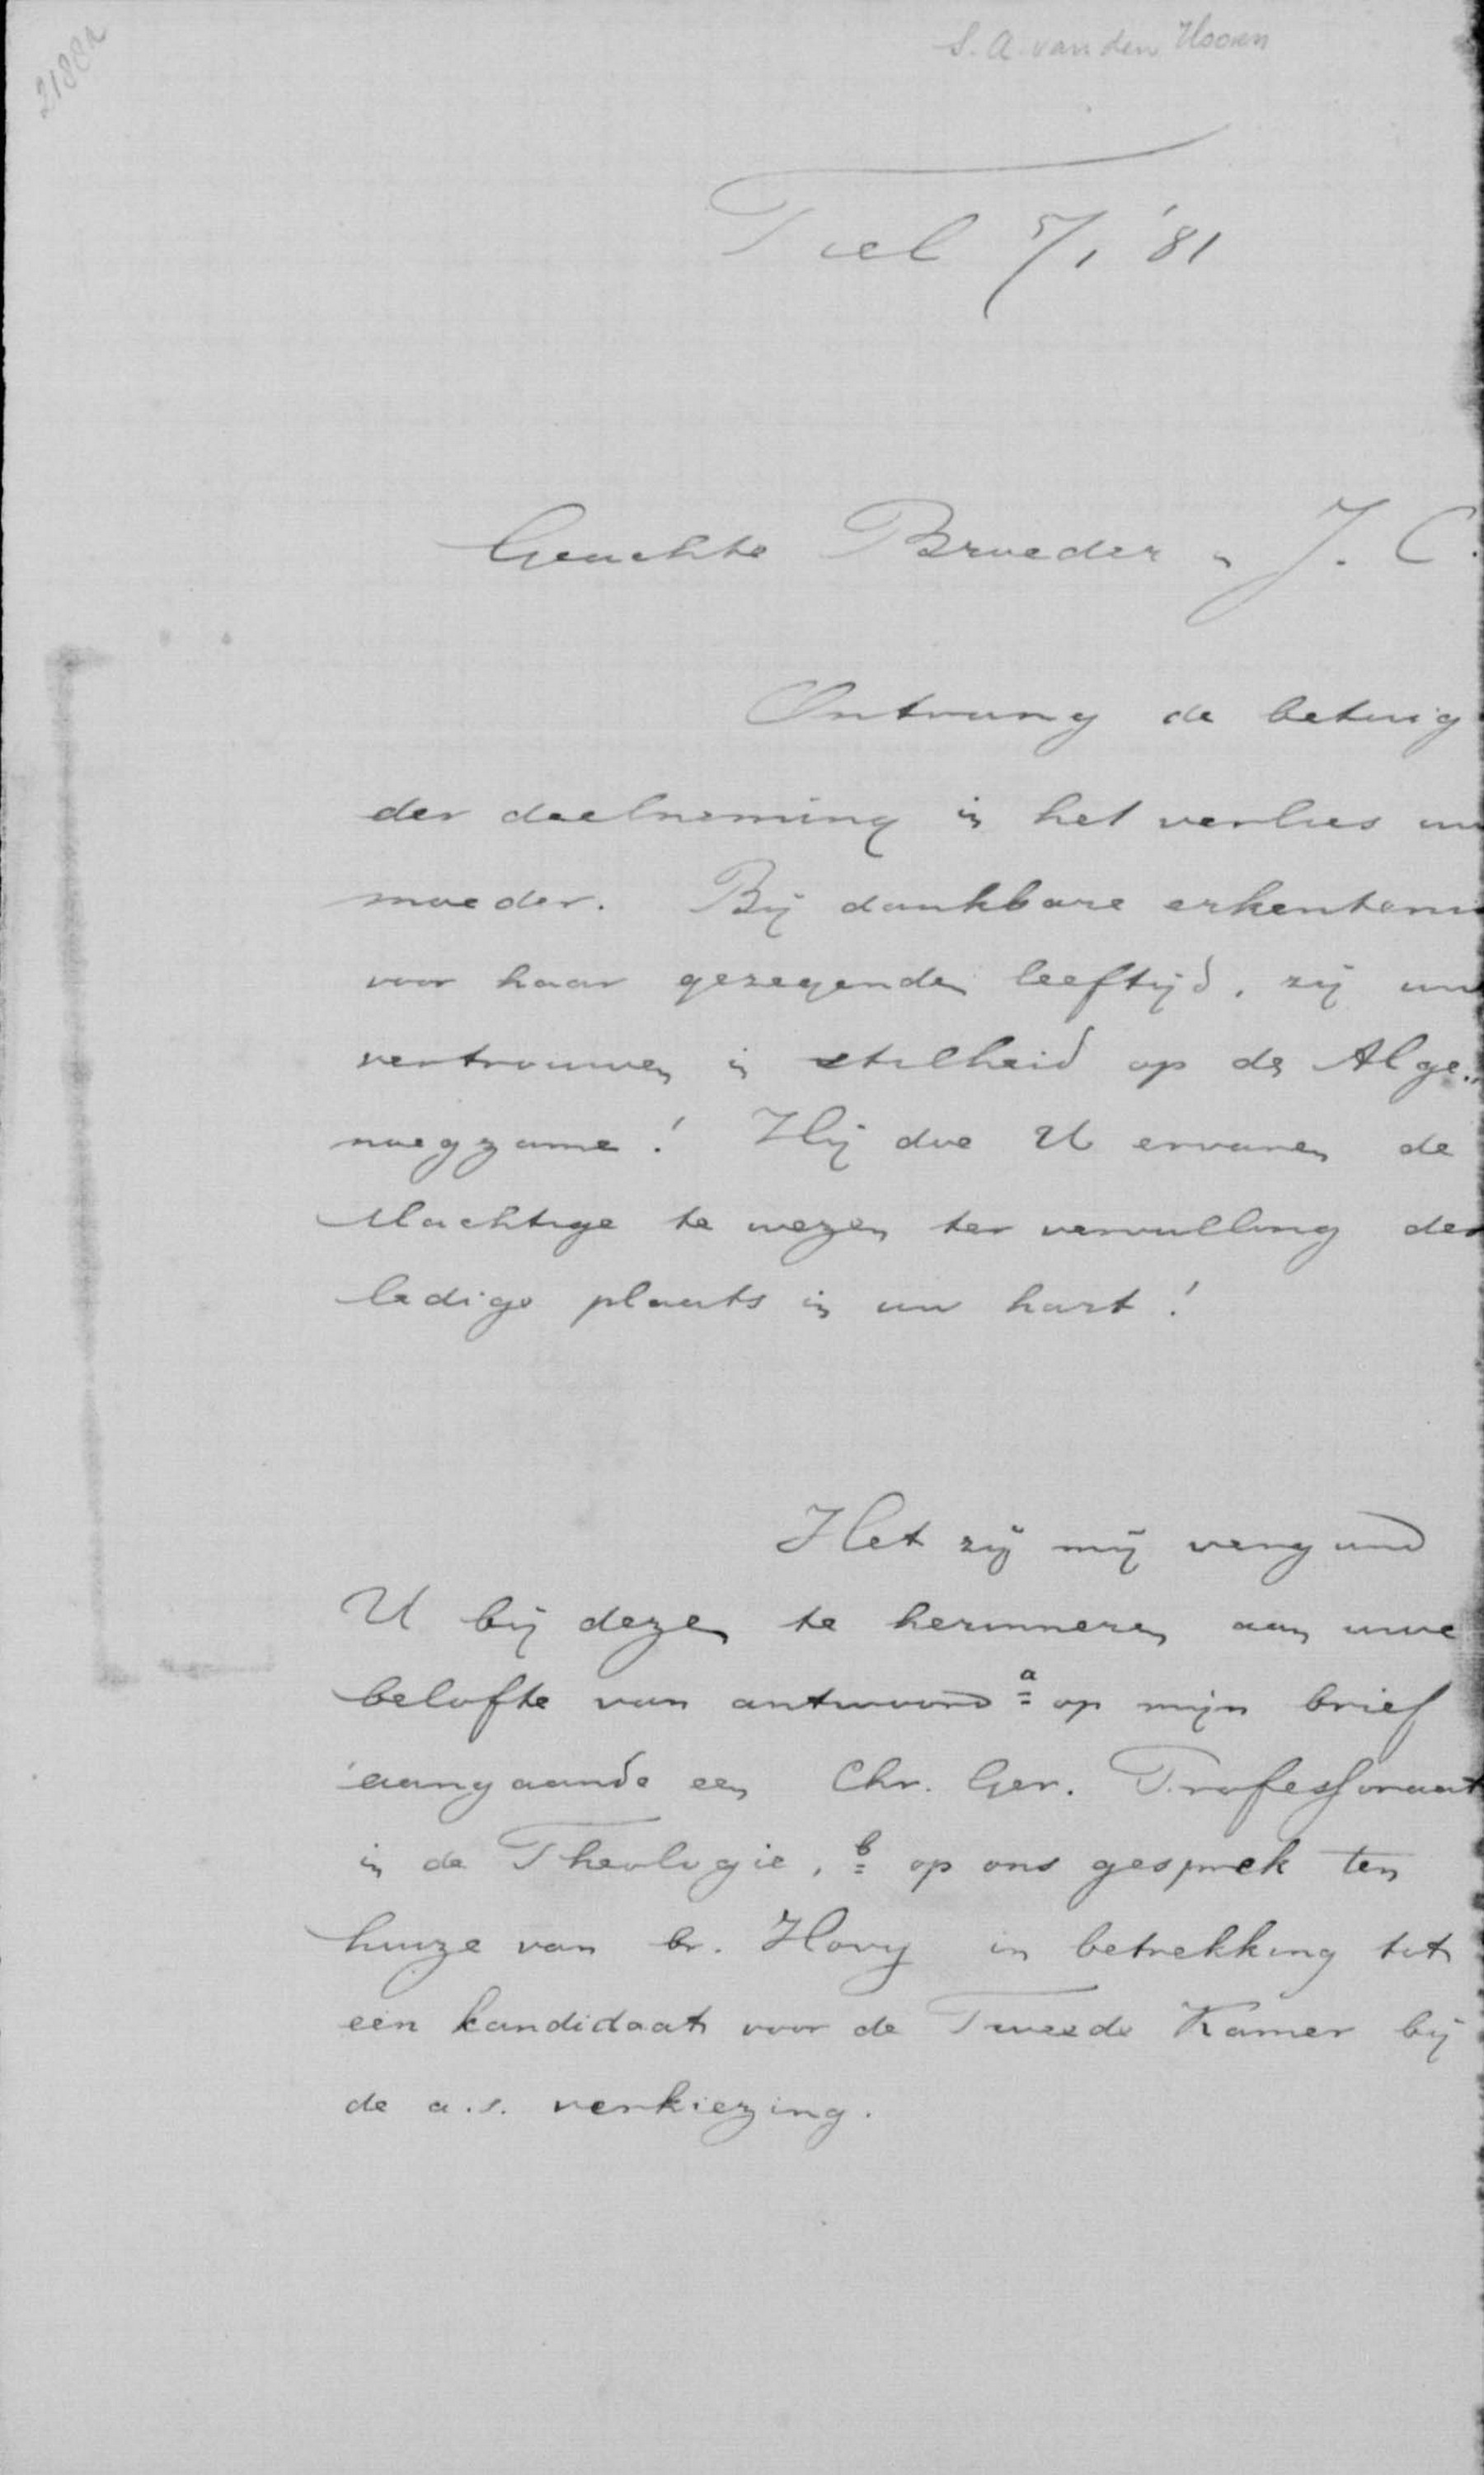 2188a
S. A. van den Hoorn
Tiel 5/1 '81
Geachte Broeder in J. C.
Ontvang de betuig
der deelneming in het verlies uw
moeder. Bij dankbare erkentenis
voor haar gezegenden leeftijd, zij uw
vertrouwen in stilheid op de Alge„
noegzame! Hij doe U ervaren de
Machtige te wezen ter vervulling der
ledige plaats in uw hart!
Het zij mij vergund
U bij dezen te herinneren aan uwe
belofte van antwoord a op mijn brief
aangaande een Chr. Ger. Professoraat
in de Theologie, b op ons gesprek ten
huize van br. Hovy in betrekking tot
een kandidaat voor de Tweede Kamer bij
de a.s. verkiezing.